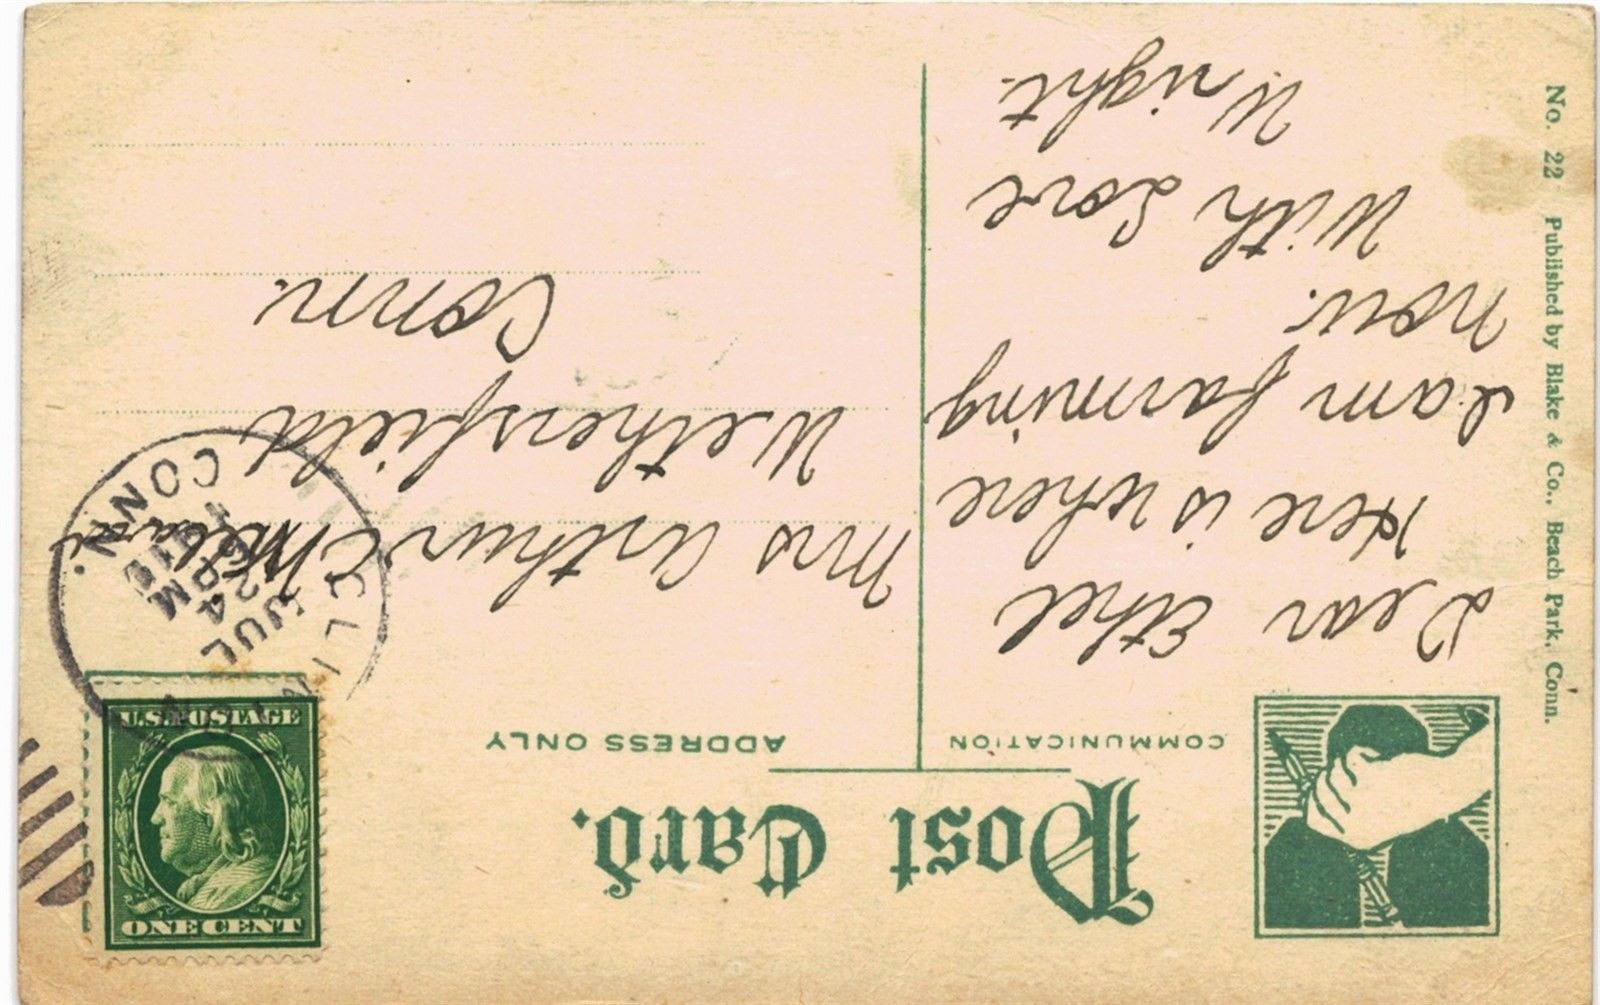 Post Card.
COMMUNICATION
ADDRESS ONLY
Dear Ethel
Here is where
I am farming
now.
With Love
Wright.
Mrs Arthur E
Wethersfield
Conn.
U.S. POSTAGE
ONE CENT
CONN.
JUL
24
6 PM
No. 22 Published by Blake & Co., Beach Park, Conn.